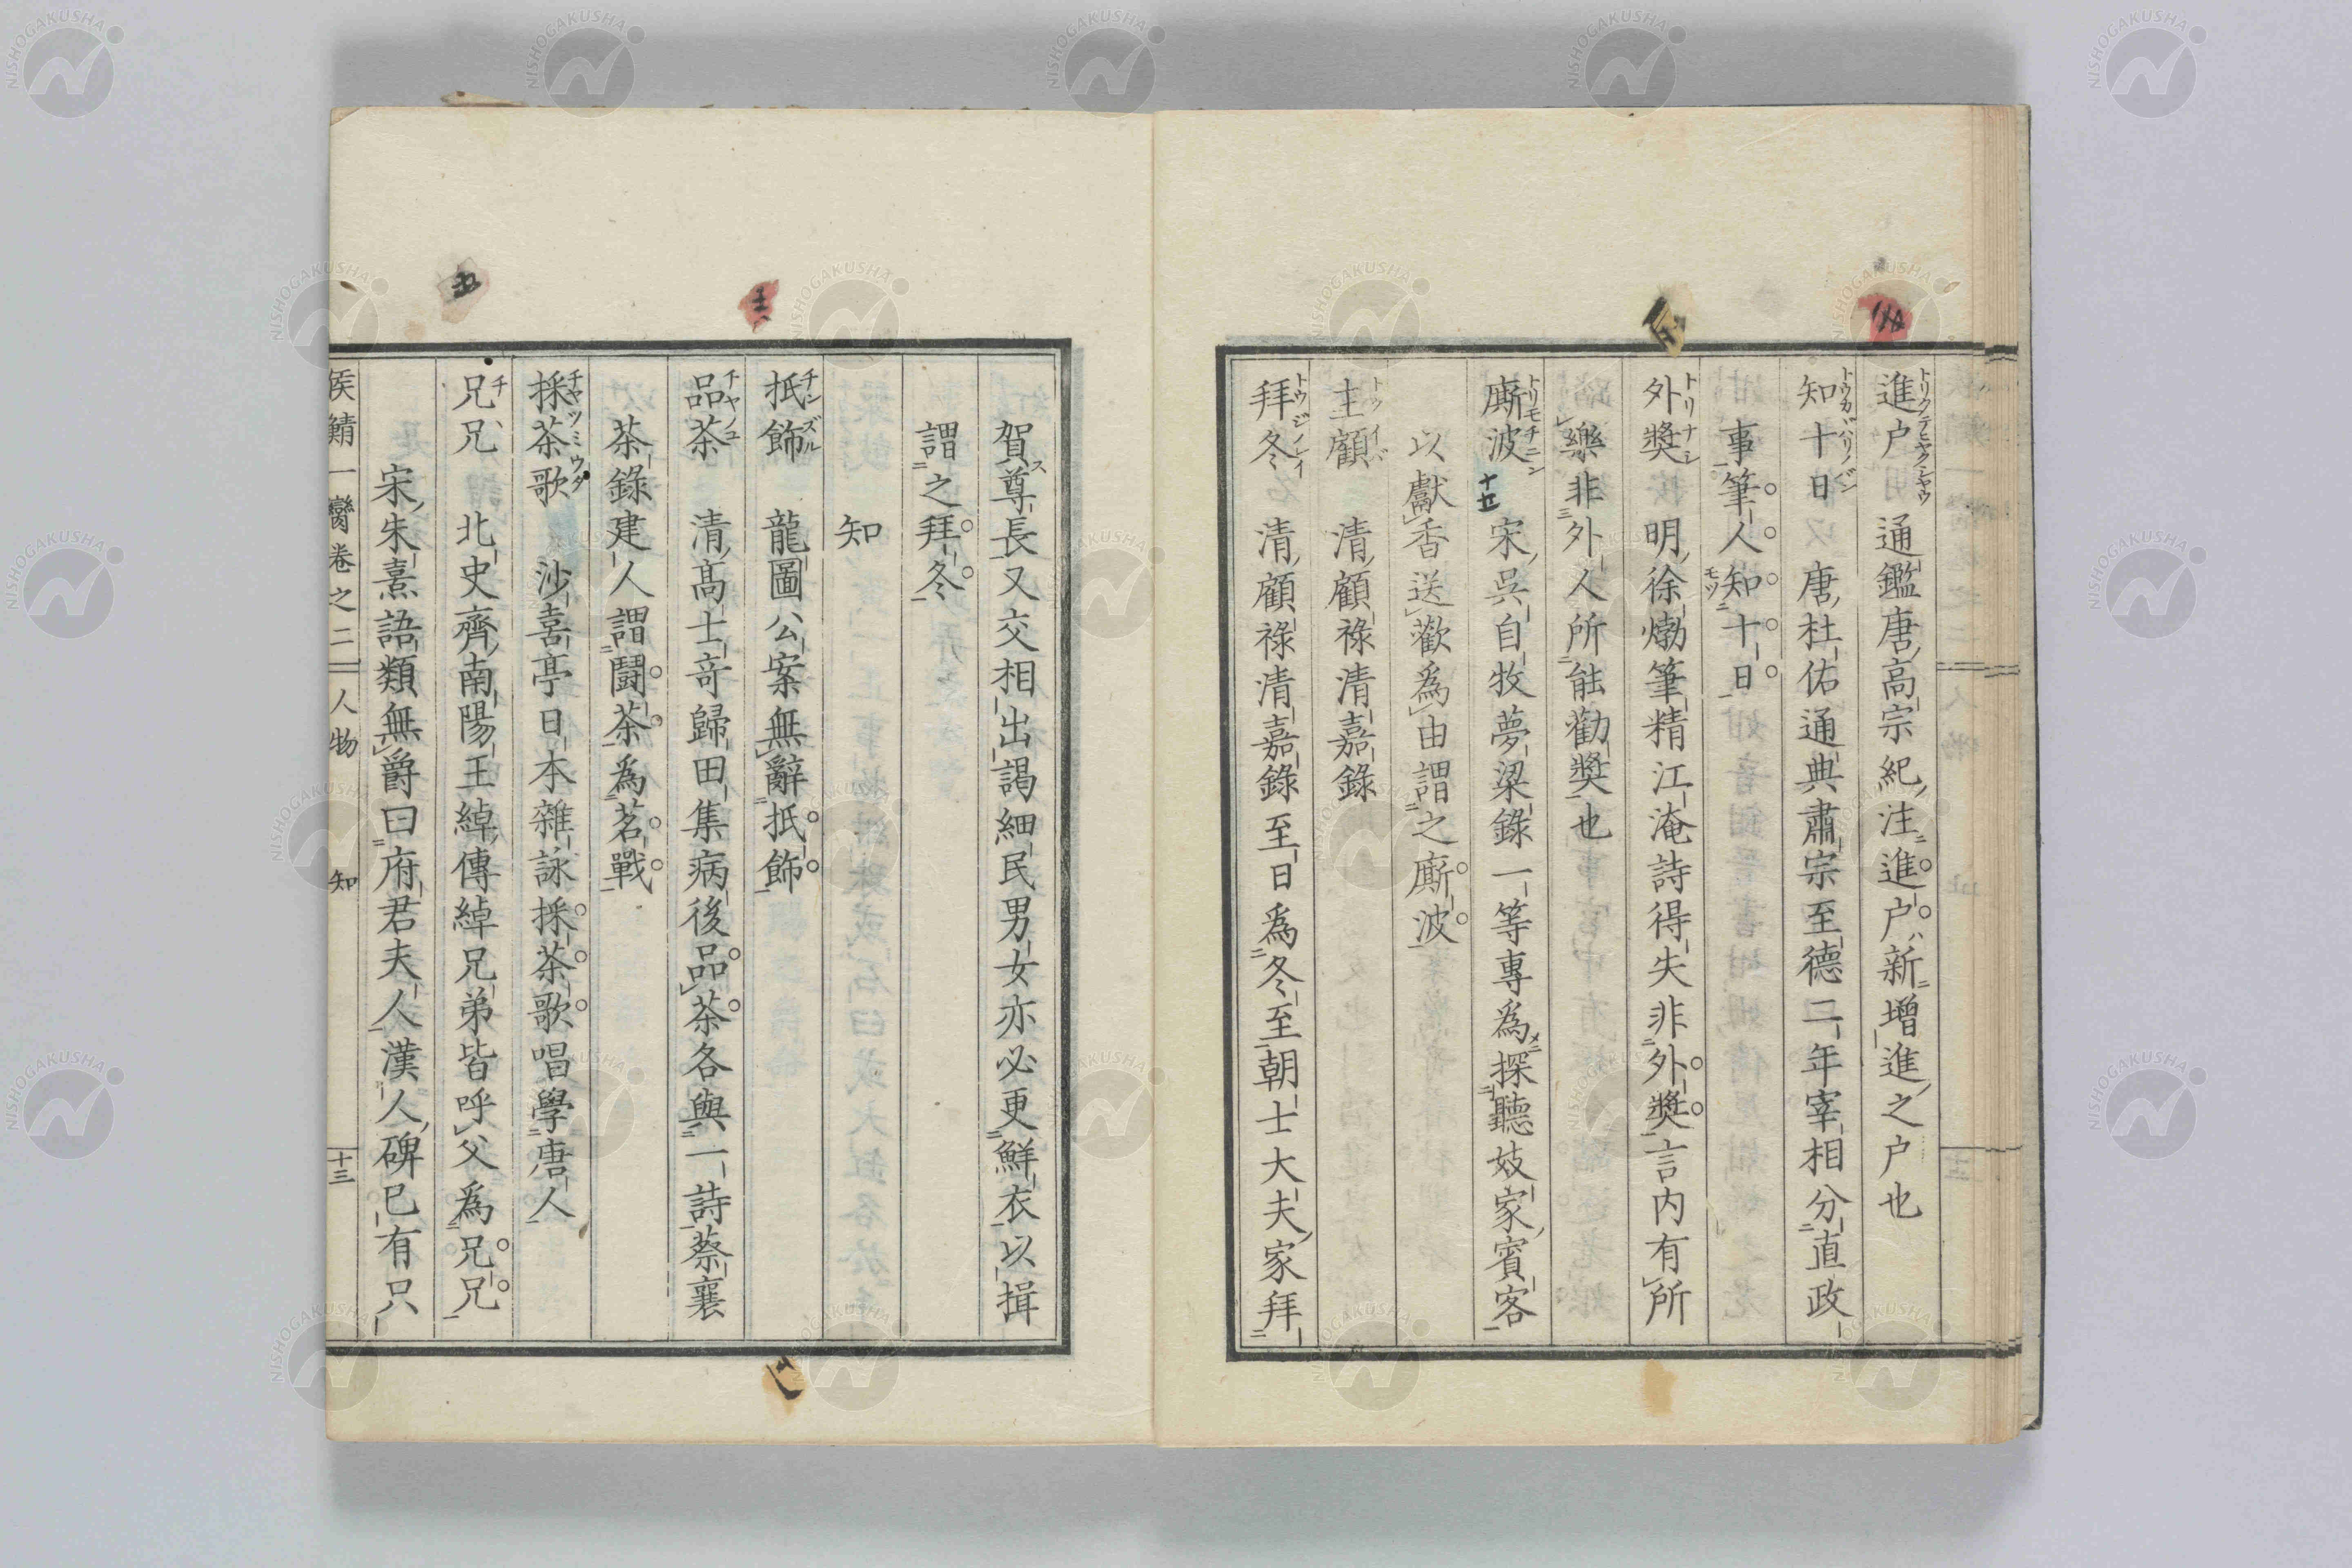 進戸 通鑑唐高宗紀注進戸新増進之戸也
知十日 唐杜佑通典肅宗至德二年宰相分直政
事筆人知十日
外獎 明徐𤊹筆精江淹詩得失非外獎言内有所
樂非外人所能勸獎也
廝波 宋吳自牧夢粱錄一等專為探聽妓家賓客
以獻香送歡為由謂之廝波
土顧 清顧祿清嘉錄
拜冬 清顧祿清嘉錄至日為冬至朝士大夫家拜
賀尊長又交相出謁細民男女亦必更鮮衣以揖
謂之拜冬
知
抵飾 龍圖公案無辭抵飾
品茶 清高士奇歸田集病後品茶各與一詩蔡襄
茶錄建人謂鬪茶為茗戰
採茶歌 沙喜亭日本雜詠採茶歌唱學唐人
兄兄 北史齊南陽王綽傳綽兄弟皆呼父為兄兄
宋朱熹語類無爵曰府君夫人漢人碑已有只
侯鯖一臠卷之二 人物 知 十三